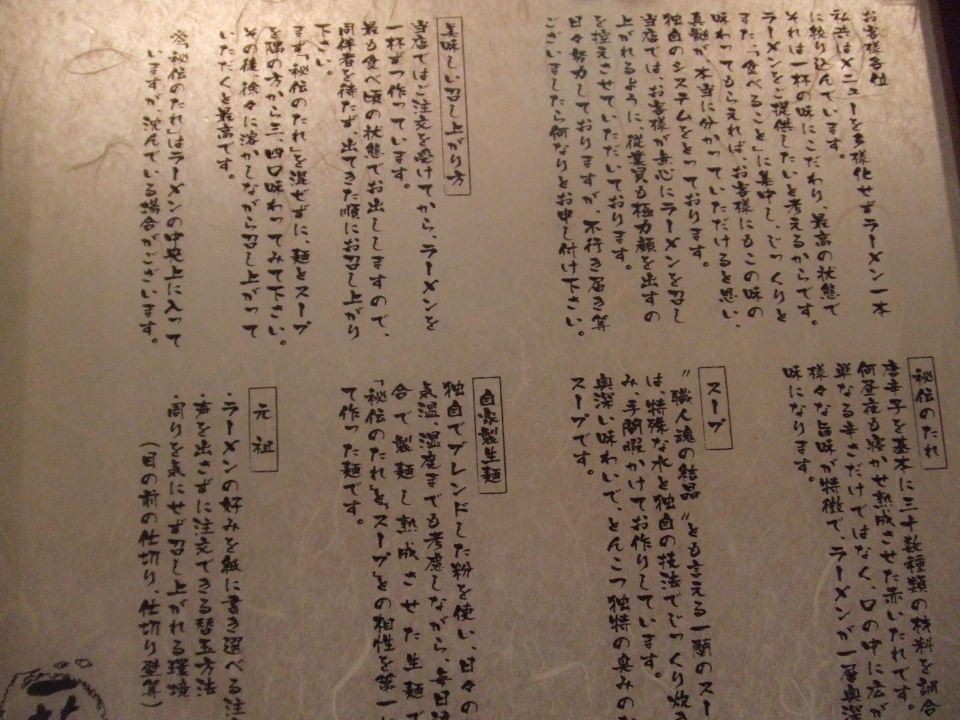 お客様各位
私共はメニューを多様化せずラーメン一本
に絞り込んでいます。
それは一杯の味にこだわり、最高の状態で
ラーメンをご提供したいと考えるからです。
また「食べること」に集中し、じっくりと
味わってもらえれば、お客様にもこの味の
真髄が、本当に分かっていただけると思い、
独自のシステムをとっております。
当店では、お客様が無心にラーメンを召し
上がれるように、従業員も極力顔を出すの
を控えさせていただいております。
日々努力しておりますが、不行き届き等
ございましたら何なりとお申し付け下さい。
美味しい召し上がり方
当店ではご注文を受けてから、ラーメンを
一杯ずつ作っています。
最も食べ頃の状態でお出ししますので、
同伴者を待たず、出てきた順にお召し上がり
下さい。
まず「秘伝のたれ」を混ぜずに、麺とスープ
を隅の方から三、四口味わってみて下さい。
その後、徐々に溶かしながら召し上がって
いただくと最高です。
※「秘伝のたれ」はラーメンの中央上に入って
いますが、沈んでいる場合がございます。
秘伝のたれ
唐辛子を基本に三十数種類の材料を調合
何昼夜も寝かせ熟成させた赤いたれです。
単なる辛さだけではなく、口の中に広が
様々な旨味が特徴で、ラーメンが一層奥深
味になります。
スープ
"職人魂の結晶"とも言える一蘭のスー
は、特殊な水と独自の技法でじっくり炊き
み、手間暇かけてお作りしています。
奥深い味わいで、とんこつ独特の臭みの
スープです。
自家製生麺
独自でブレンドした粉を使い、日々の
気温、湿度までも考慮しながら、毎日
合で製麺し熟成させた生麺で
「秘伝のたれ」と「スープ」との相性を第一
て作った麺です。
元祖
・ラーメンの好みを紙に書き選べる注
・声を出さずに注文できる替玉方法
・周りを気にせず召し上がれる環境
(目の前の仕切り、仕切り壁等)